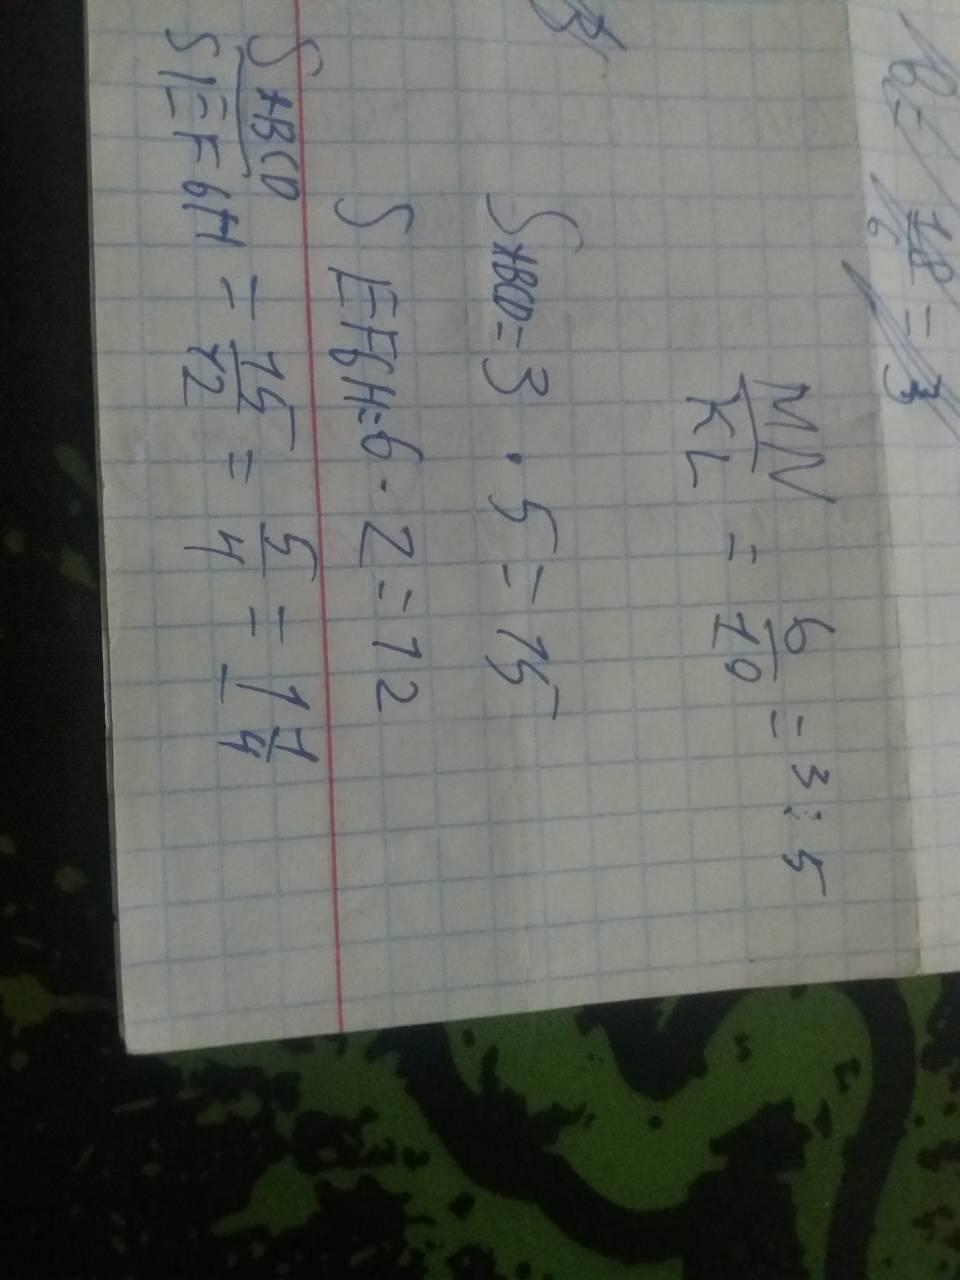 18/6 = 3
MN/KL = 6/10 = 3 : 5
SABCD = 3 · 5 = 15
S EFGH = 6 · 2 = 12
SABCD/SEFGH = 15/12 = 5/4 = 1 1/4